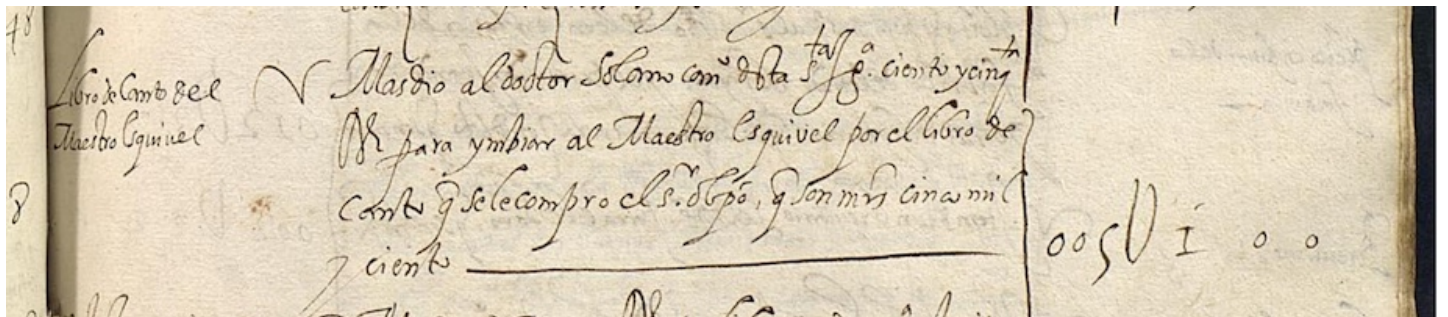 Libro de Canto del
Maestro Esquivel
V Mas dio al doctor Solano can.º dsta s.ta ygl.ª ciento y cinq.ta
RR para ymbiar al Maestro Esquivel por el libro de
Canto q̃ se le compro el s.r obpõ, q̃ son mrs cinco mil
y ciento
005U100